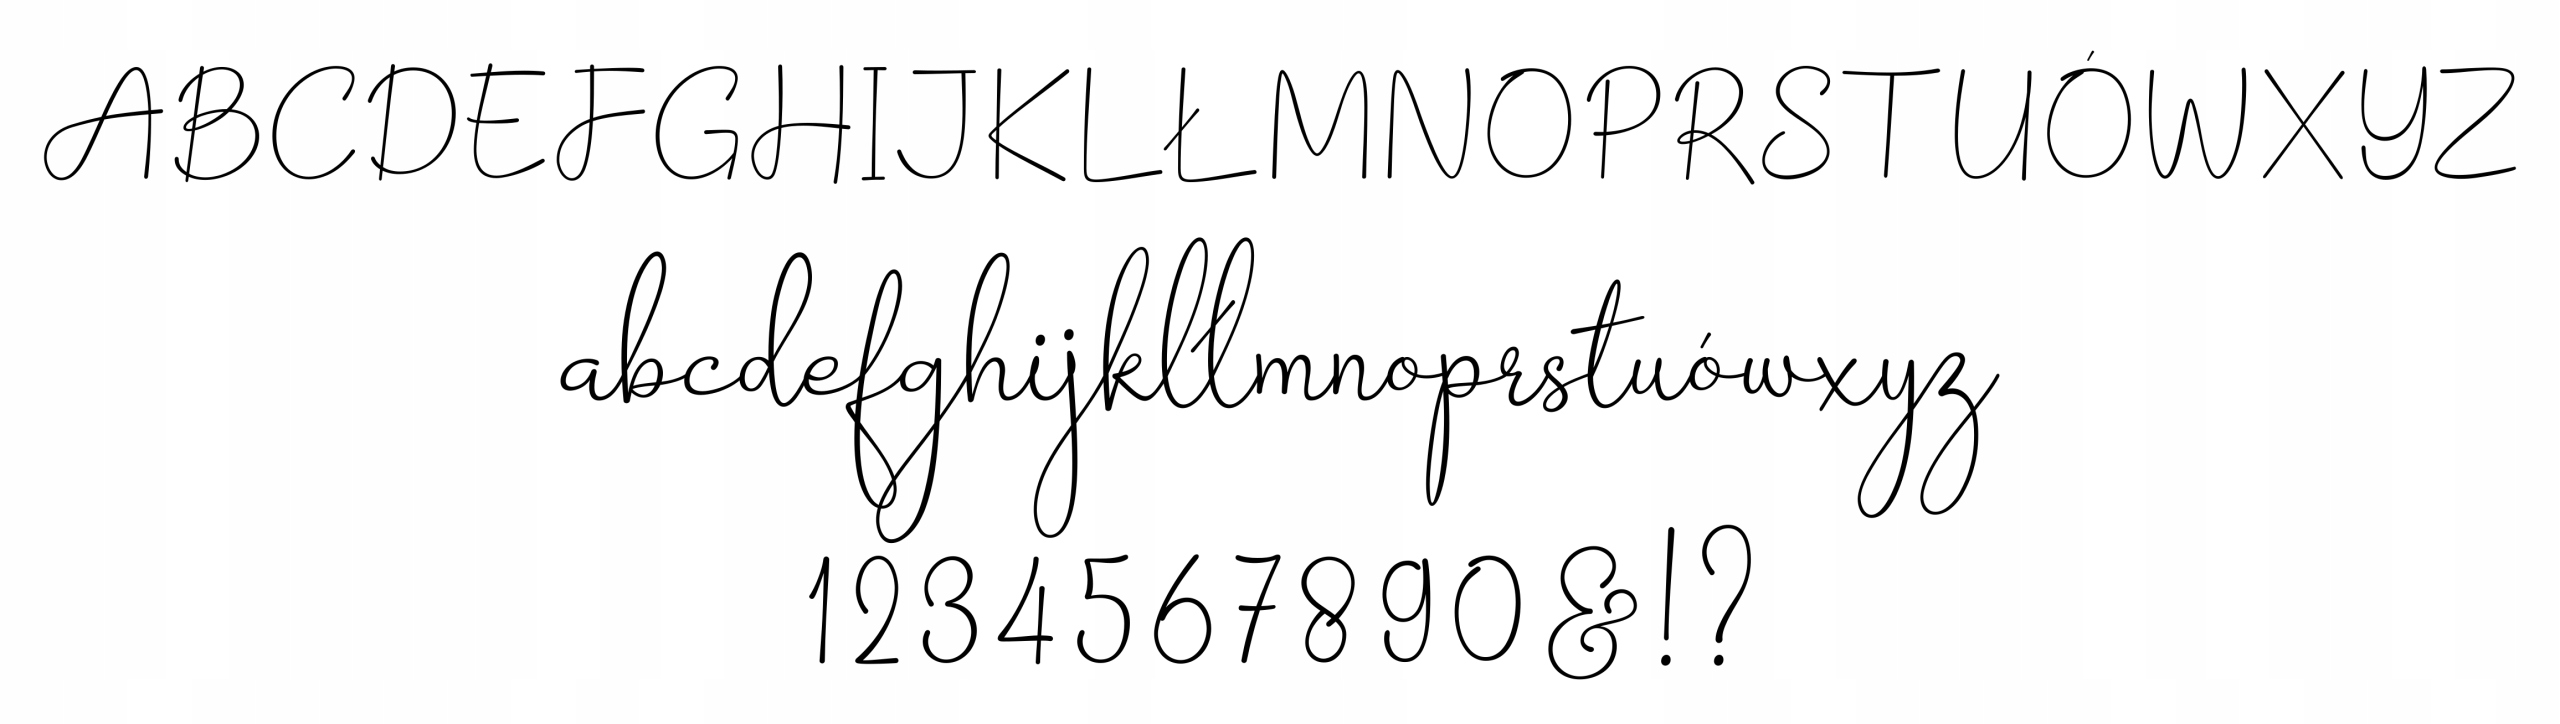 ABCDEFGHIJKLŁMNOPRSTUÓWXYZ
abcdefghijklłmnoprstuówxyz
1234567890&!?